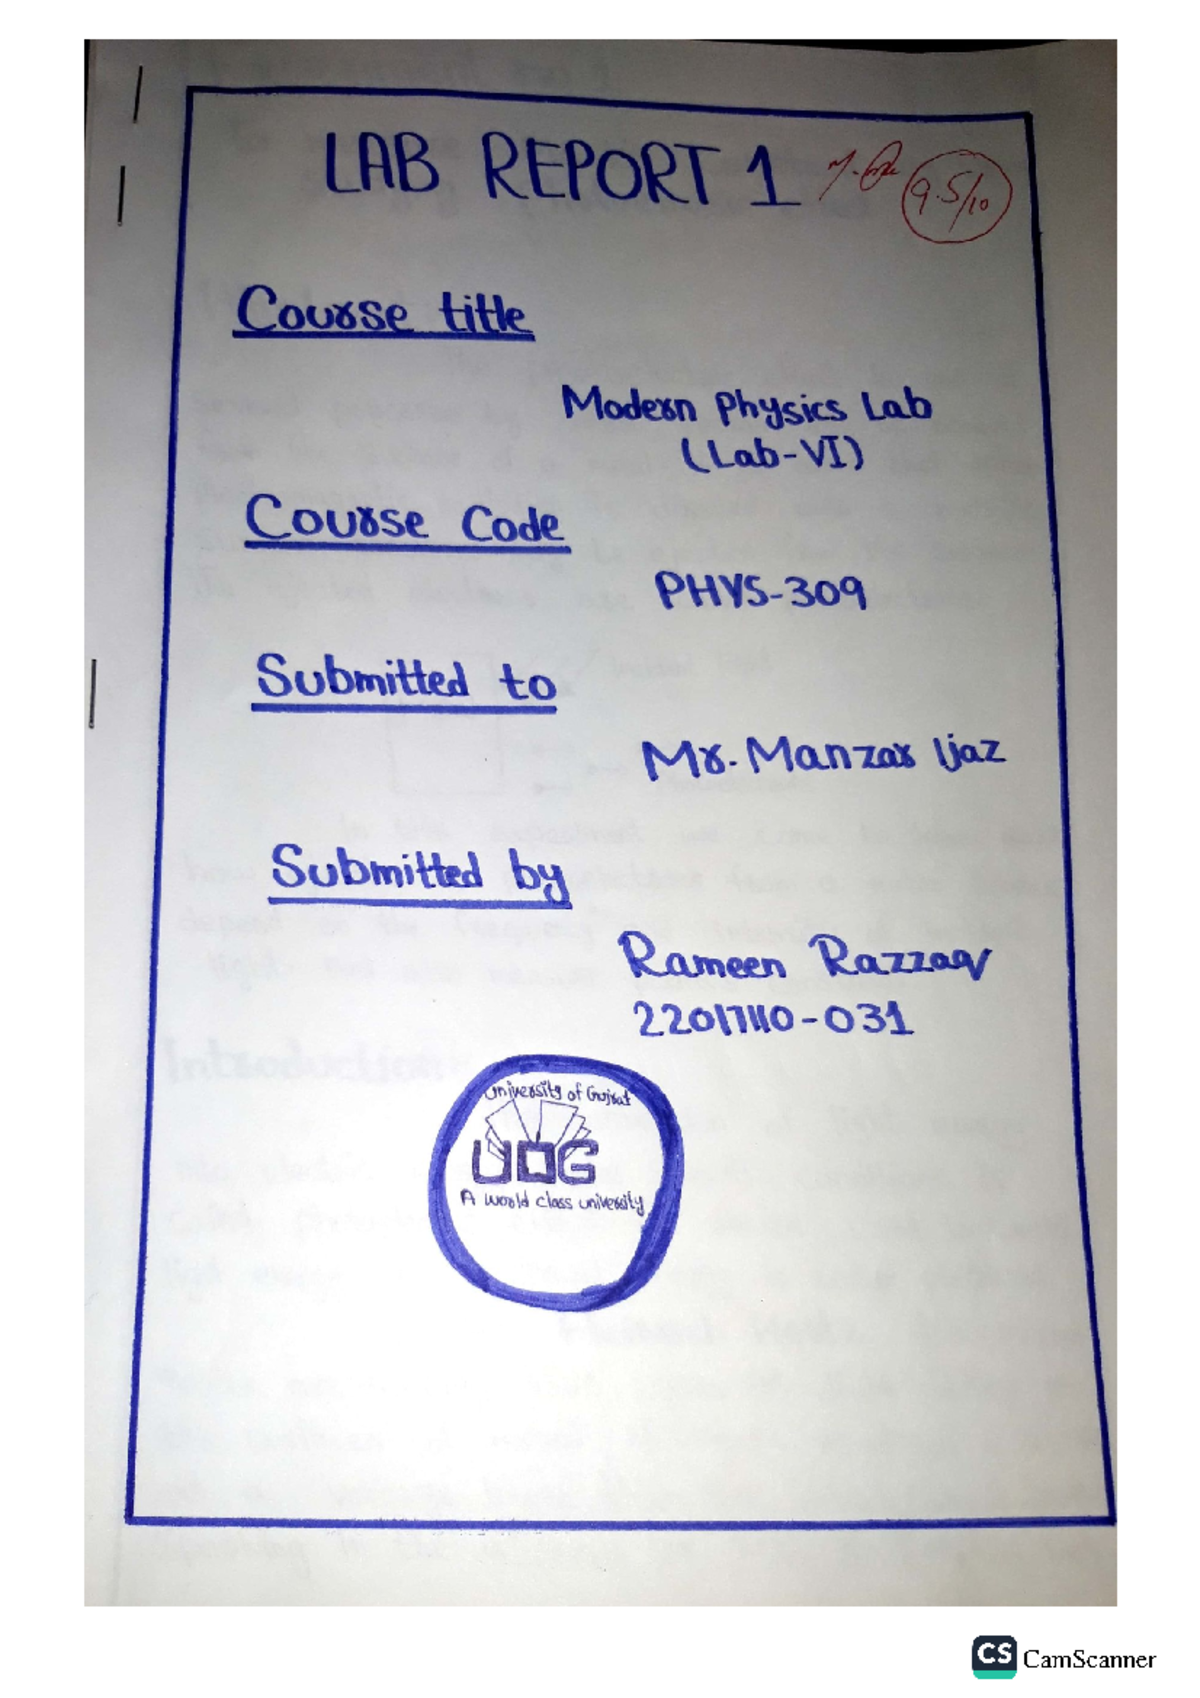 LAB REPORT 1
9.5/10
Course title
Modern Physics Lab
(Lab-VI)
Course Code
PHYS-309
Submitted to
Mr. Manzar Ijaz
Submitted by
Rameen Razzaq
22017110-031
University of Gujrat
UOG
A world class university
CS CamScanner